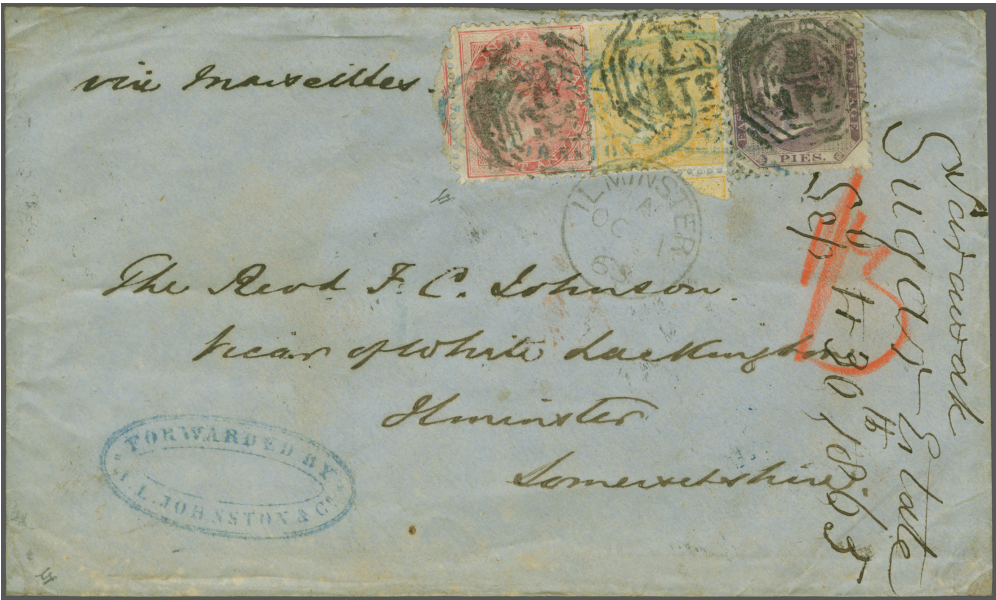 via Marseilles.
PIES.
ILMINSTER
A
OC 1
63
The Revd. F. C. Johnson.
Vicar of White Lackington
Ilminster
Somersetshire.
FORWARDED BY
L. JOHNSTON & Co
Sarawak
Sugar Estate
30th 1863